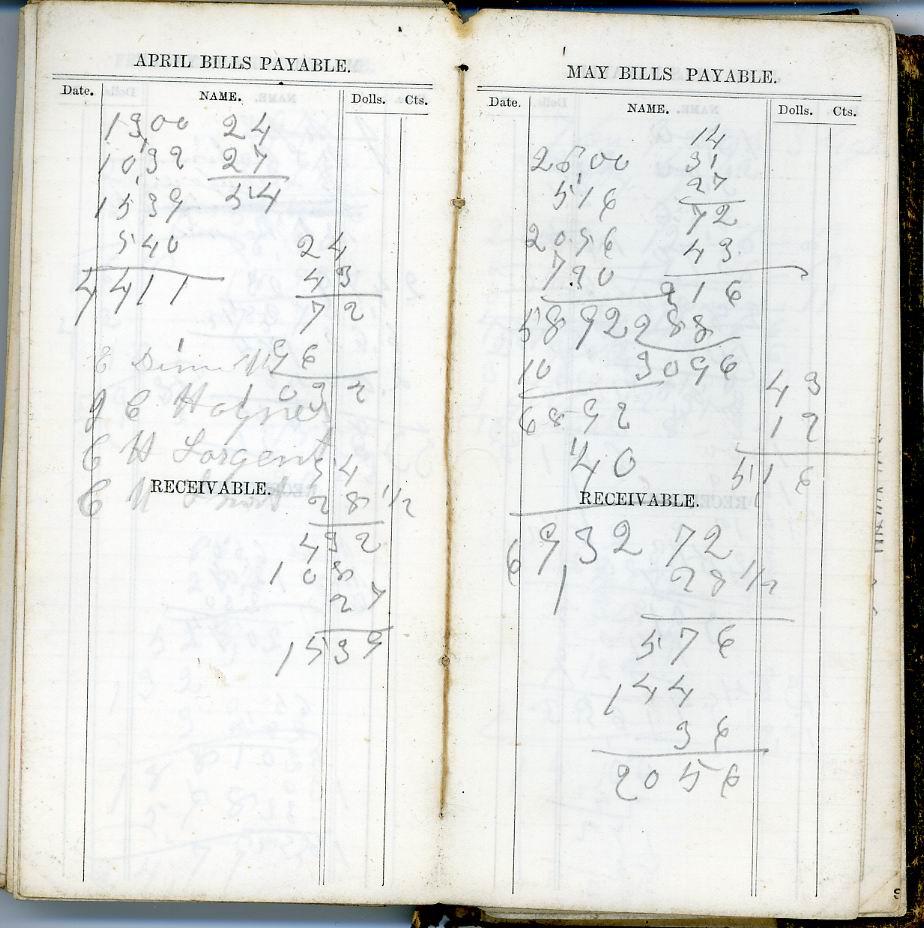 APRIL BILLS PAYABLE.
Date. NAME. Dolls. Cts.
1900 24
1032 27
1539 54
540 24
4411 43
72
E
96
J C Holmes
C H Sargent
54
RECEIVABLE.
C H
28 1/2
432
108
27
1539
MAY BILLS PAYABLE.
Date. NAME. Dolls. Cts.
14
2500 31
516 27
72
2056 43
790
216
5892 288
10 3096
43
6892 12
40 516
RECEIVABLE.
6932 72
1 28 1/2
576
144
36
2056